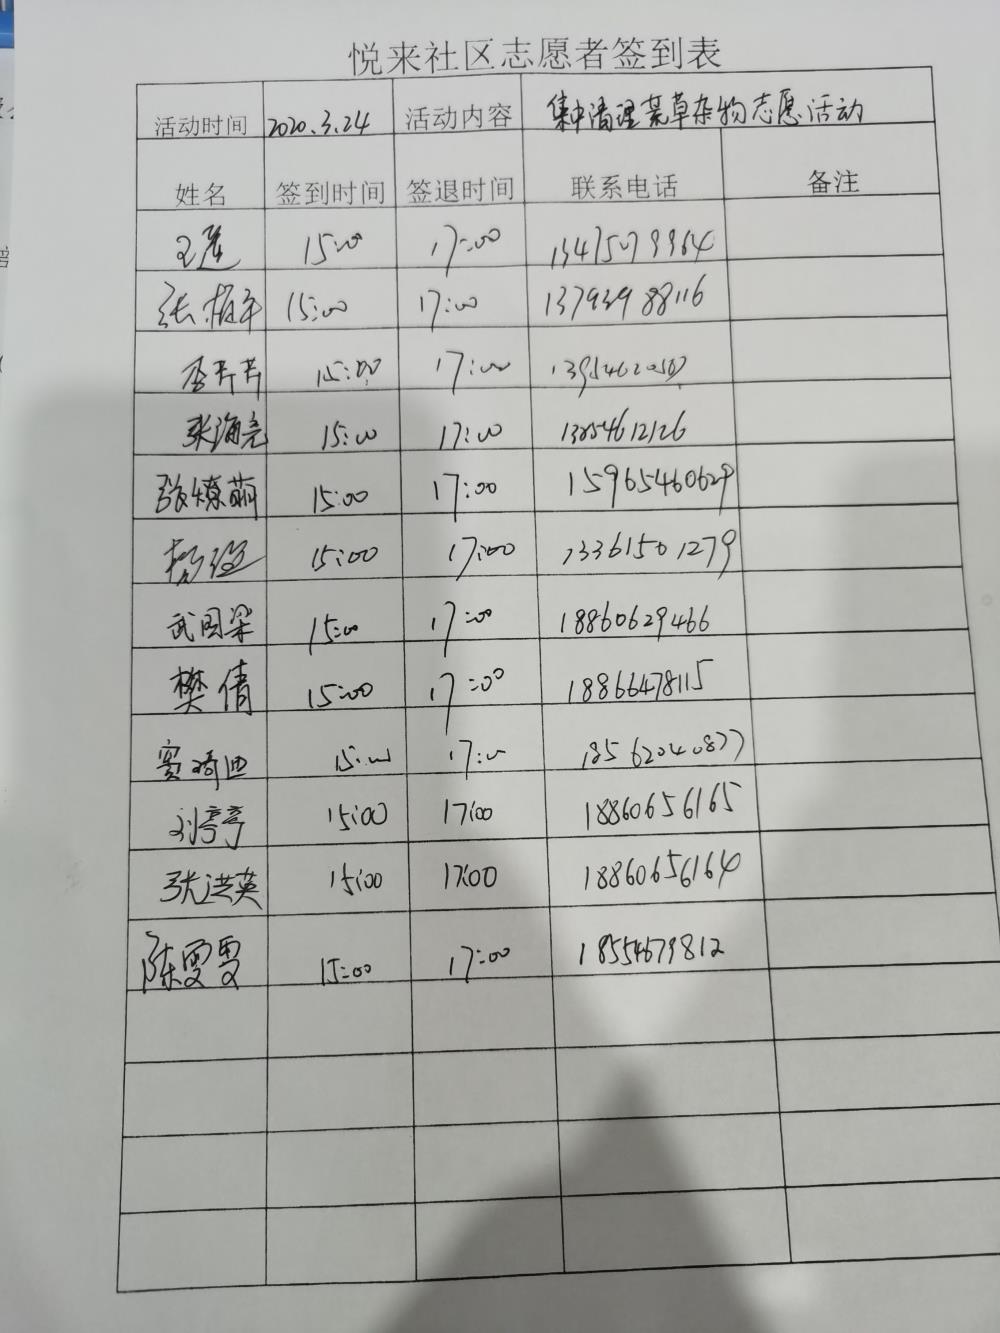 悦来社区志愿者签到表
活动时间 2020.3.24 活动内容 集中清理荒草杂物志愿活动
姓名 签到时间 签退时间 联系电话 备注
王莲 15:00 17:00
张 15:00 17:00 13793988116
李芹芹 15:00 17:00
张海亮 15:00 17:00 13854612126
张燎萌 15:00 17:00 15965460629
杨 15:00 17:00 13361501279
武国梁 15:00 17:00 18860629466
樊倩 15:00 17:00 18866478115
窦琦迪 15:00 17:00 18562040877
刘亭亭 15:00 17:00 18860656165
张洪英 15:00 17:00 18860656164
陈雯雯 15:00 17:00 18554679812